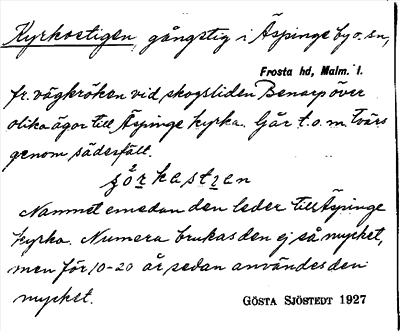 Kyrkostigen, gångstig i Äspinge by o. sn,
Frosta hd, Malm. l.
fr. vägkröken vid skogsliden Benarp över
olika ägor till Äspinge kyrka. Går t.o.m. tvärs
genom sädesfält.
Nammet emedan den leder till Äspinge
kyrka. Numera brukas den ej så mycket,
men för 10-20 år sedan användes den
mycket.
GÖSTA SJÖSTEDT 1927